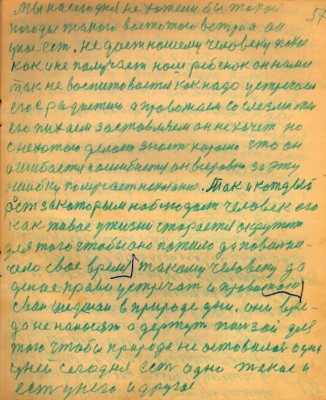 57
Мы насегодня не хотели бы такой
погоды такого востотого ветра он
у нас ест, не дает нашему человеку покоя
как и не получает наш ребенок он нами
так не воспитовается как надо устречаем
его с радостию а провожаем со слезми мы
его пихаем заставляем он не хочет но
с нехотою делает знает хорошо что он
ошибается ошибается он всеровно за эту
ошибку получает наказание. Так и каждый
рост за которым наблюдает человек его
как такое у жизни старается окружит
для того чтобы оно попало да поважи-
чело свое время такому человеку да
делае права устречат и провожат
сваи шедшаи в природе дни. они вре-
да не наносят а держут пользой для
того чтобы природе не оставался один
дней сегодня ест одно такое и
ест у него и другое